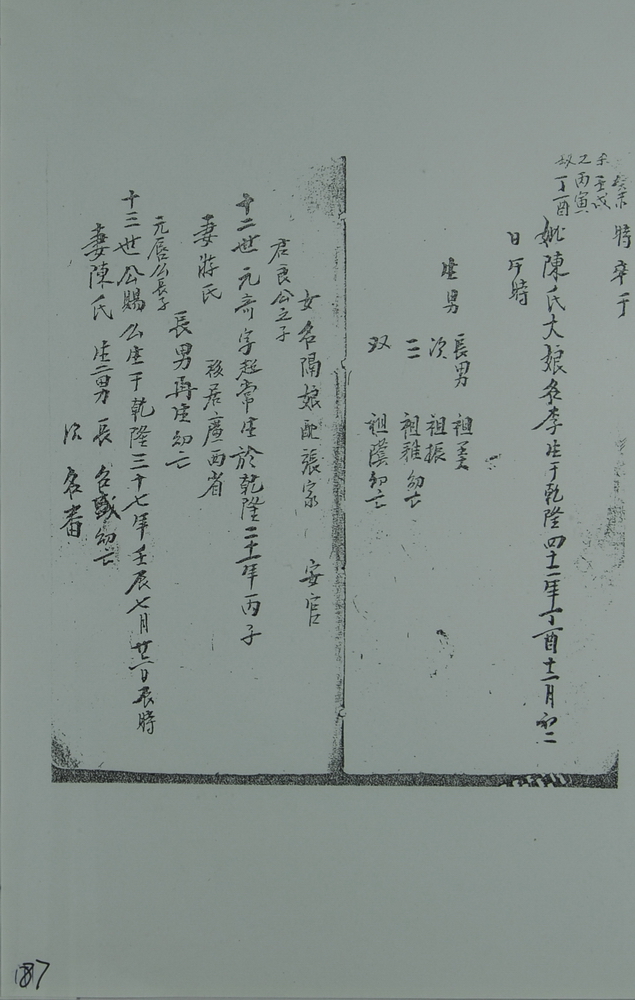 癸未 時卒于
壬戌
乙丙寅
丁酉
妣陳氏大娘名李生于乾隆四十二年丁酉十二月初二
日午時
生男 長男 祖美
次 祖振
三 祖雅幼亡
双 祖漢幼亡
女名隔娘配張家 安官
君良公之子
十二世元奇字起常生於乾隆二十一年丙子
妻蔣氏 後居廣西省
長男再生幼亡
元唇公長子
十三世公賜公生于乾隆三十七年壬辰七月廿二日辰時
妻陳氏生二男長名盛幼亡
次名番
187